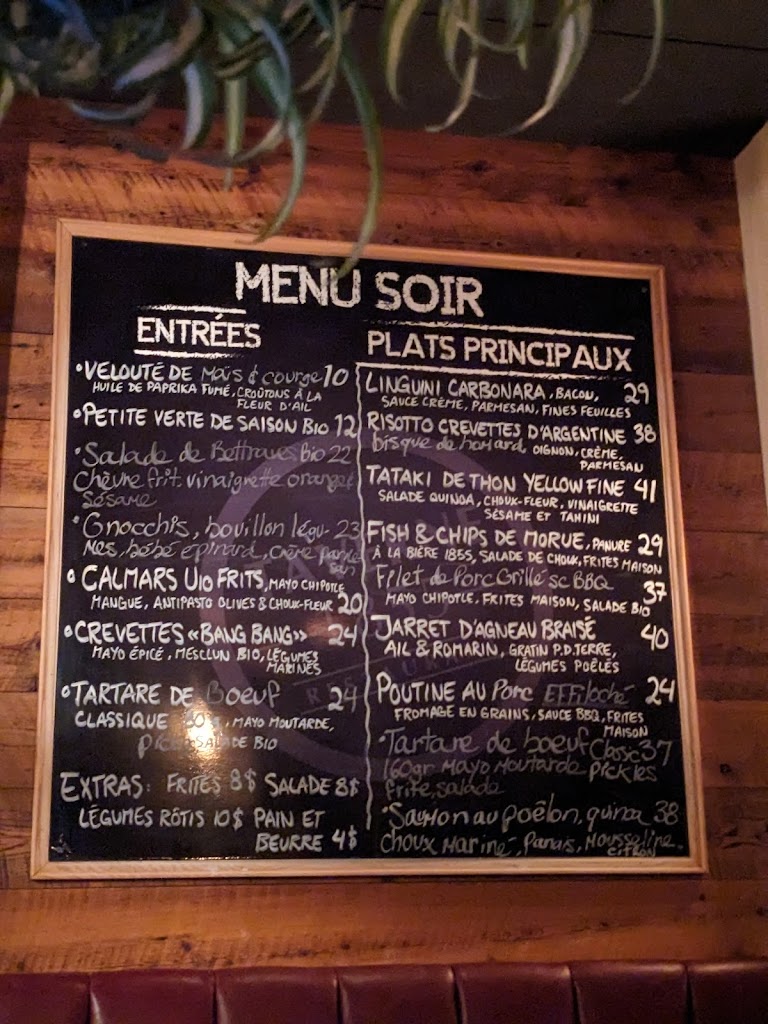 MENU SOIR
ENTRÉES
•VELOUTÉ DE Maïs & courge 10
HUILE DE PAPRIKA FUMÉ, CROÛTONS À LA
FLEUR D'AIL
•PETITE VERTE DE SAISON BIO 12
•Salade de Bettraves Bio 22
Chèvre frit, vinaigrette orange
sésame
•Gnocchis, bouillon légu- 23
mes, bébé epinard, crème
•CALMARS U10 FRITS, MAYO CHIPOTLE
MANGUE, ANTIPASTO OLIVES & CHOUX-FLEUR 20
•CREVETTES «BANG BANG» 24
MAYO ÉPICÉ, MESCLUN BIO, LÉGUMES
MARINÉS
•TARTARE DE Boeuf 24
CLASSIQUE, MAYO MOUTARDE,
SALADE BIO
EXTRAS: FRITES 8$ SALADE 8$
LÉGUMES RÔTIS 10$ PAIN ET
BEURRE 4$
PLATS PRINCIPAUX
LINGUINI CARBONARA, BACON, 29
SAUCE CRÈME, PARMESAN, FINES FEUILLES
RISOTTO CREVETTES D'ARGENTINE 38
bisque de homard, OIGNON, CRÈME,
PARMESAN
TATAKI DE THON YELLOW FINE 41
SALADE QUINOA, CHOUX-FLEUR, VINAIGRETTE
SÉSAME ET TAHINI
FISH & CHIPS DE MORUE, PANURE 29
À LA BIÈRE 1855, SALADE DE CHOUX, FRITES MAISON
Filet de Porc Grillé sc BBQ 37
MAYO CHIPOTLE, FRITES MAISON, SALADE BIO
JARRET D'AGNEAU BRAISÉ 40
AIL & ROMARIN, GRATIN P.D.TERRE,
LÉGUMES POÊLÉS
POUTINE AU Porc EFFiloché 24
FROMAGE EN GRAINS, SAUCE BBQ, FRITES
MAISON
•Tartare de boeuf Classc 37
160gr Mayo Moutarde Pickles
frite, salade
•Saumon au poêlon, quinoa 38
choux Mariné, Panais, Mousseline
CITRON